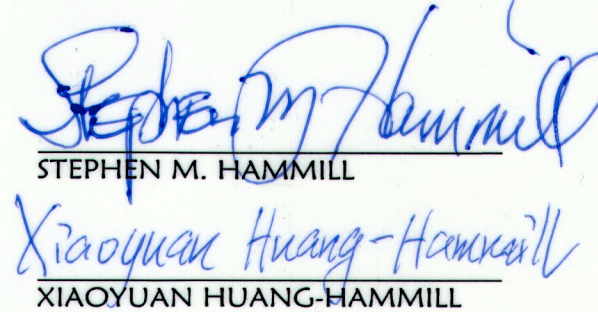 Stephen M Hammill
STEPHEN M. HAMMILL
Xiaoyuan Huang-Hammill
XIAOYUAN HUANG-HAMMILL